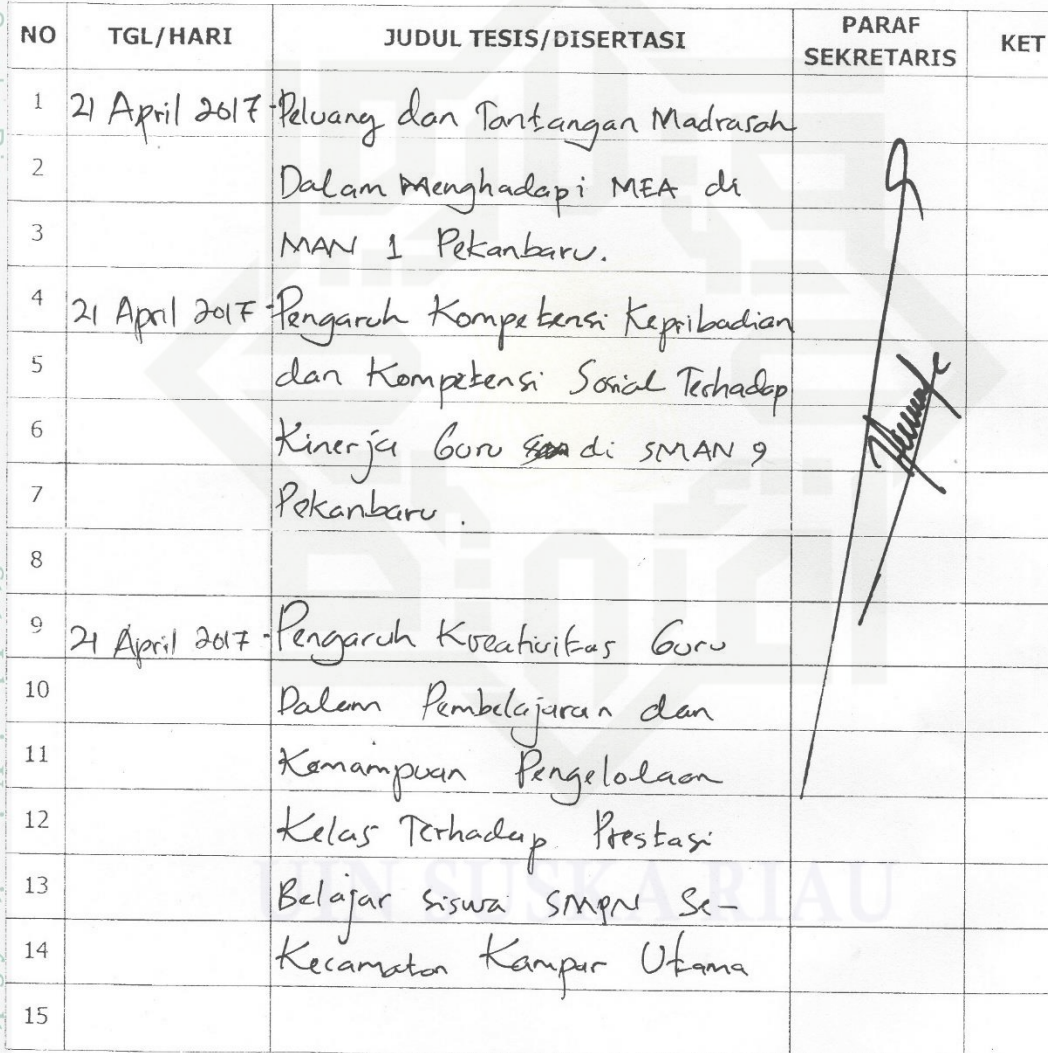 NO TGL/HARI JUDUL TESIS/DISERTASI PARAF SEKRETARIS KET
1 21 April 2017 - Peluang dan Tantangan Madrasah
2 Dalam Menghadapi MEA di
3 MAN 1 Pekanbaru.
4 21 April 2017 - Pengaruh Kompetensi Kepribadian
5 dan Kompetensi Sosial Terhadap
6 Kinerja Guru di SMAN 9
7 Pekanbaru.
8
9 21 April 2017 - Pengaruh Kreativitas Guru
10 Dalam Pembelajaran dan
11 Kemampuan Pengelolaan
12 Kelas Terhadap Prestasi
13 Belajar siswa SMPN Se-
14 Kecamatan Kampar Utama
15
UIN SUSKA RIAU